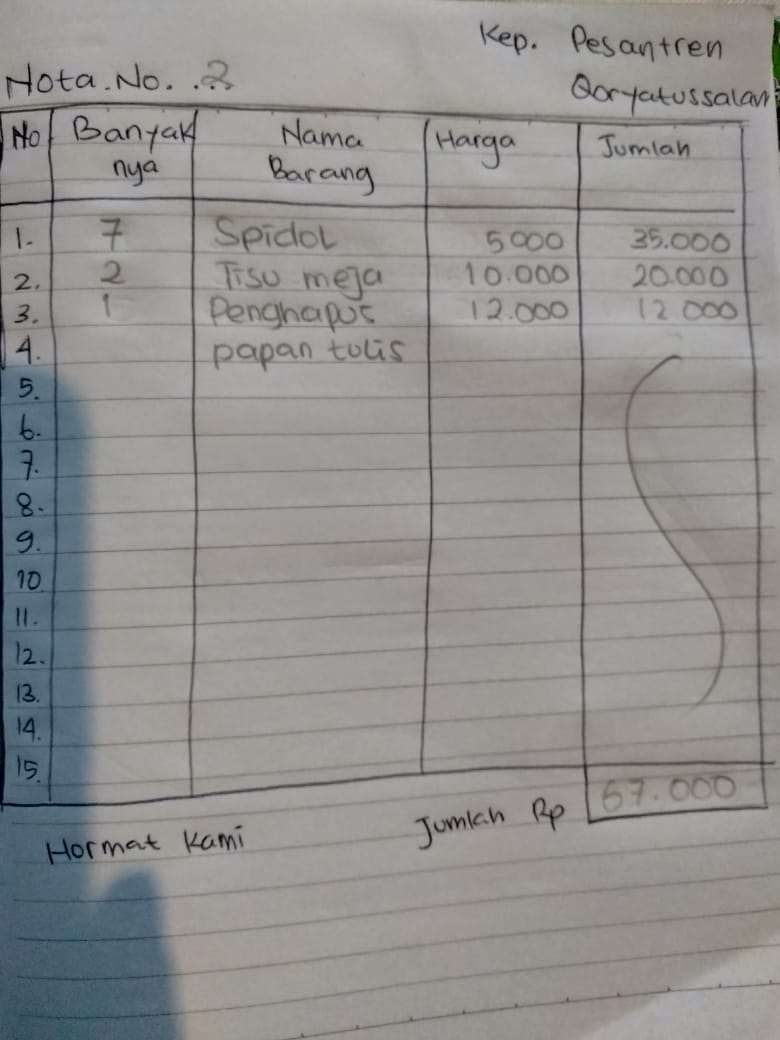 Kep. Pesantren
Nota.No. ..2
Qoryatussalam
No Banyak nya Nama Barang Harga Jumlah
1. 7 Spidol 5000 35.000
2. 2 Tisu meja 10.000 20.000
3. 1 Penghapus 12.000 12.000
4. papan tulis
5.
6.
7.
8.
9.
10.
11.
12.
13.
14.
15.
Jumlah Rp 67.000
Hormat Kami